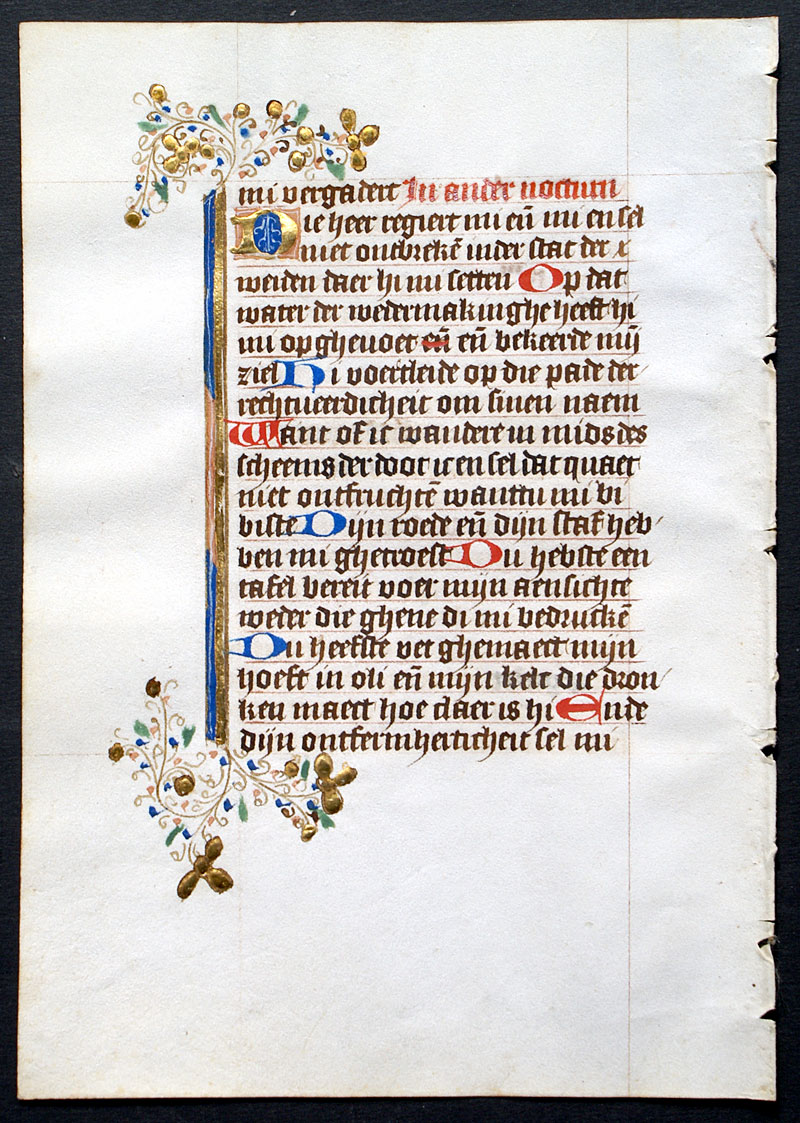 mi vergadert In ander nocturn
Die heer regiert mi eñ mi en sel
niet ontbrekē inder stat der x
weiden daer hi mi setten Op dat
water der wedermakinghe heeft hi
mi op ghevoet eñ eñ bekeerde mijn
ziel Hi voertleide op die pade der
rechtueerdicheit om sinen naem
Want of ic wandere in mids des
scheems der doot ic en sel dat quaet
niet ontfruchtē wanttu mi bi
biste Dijn roede eñ dijn staf heb
ben mi ghetroest Du hebste een
tafel bereit voer mijn aensichte
weder die ghene di mi bedruckē
Du heefste vet ghemaect mijn
hoeft in oli eñ mijn kelc die dron
ken maect hoe claer is hi Ende
dijn ontfermherticheit sel mi